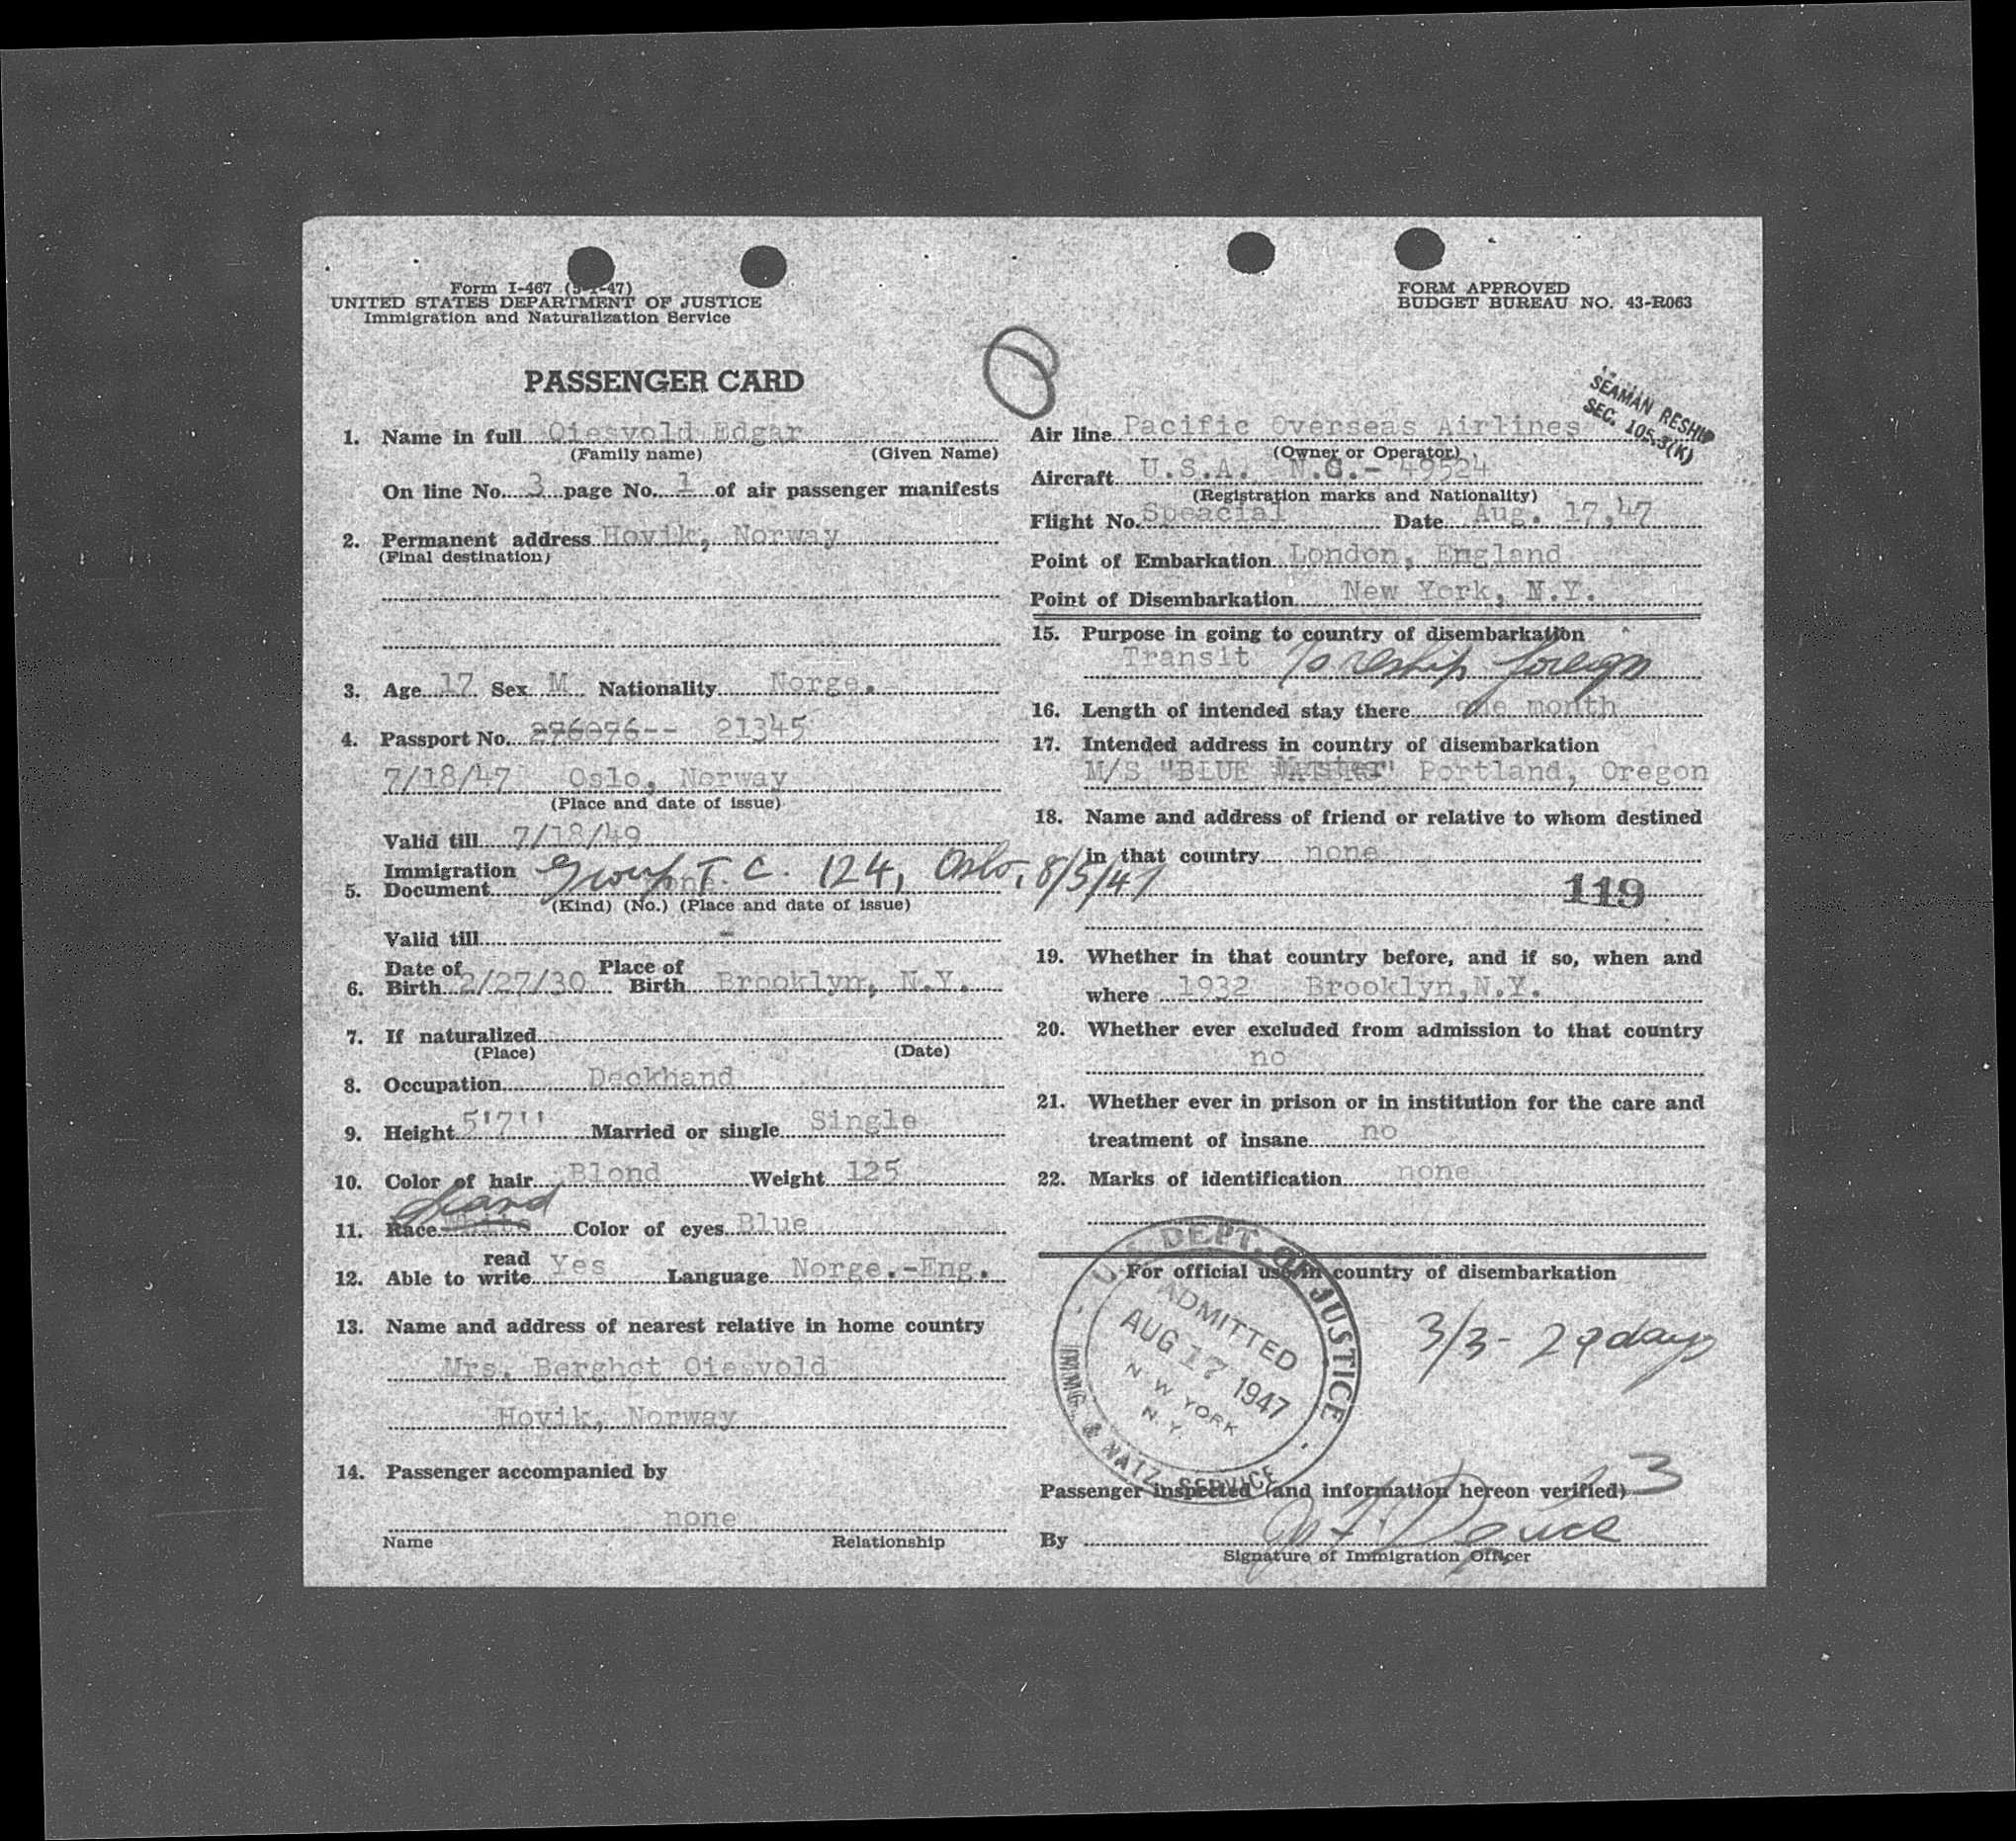 Form I-467 (5-1-47)
UNITED STATES DEPARTMENT OF JUSTICE
Immigration and Naturalization Service
FORM APPROVED
BUDGET BUREAU NO. 43-R063
PASSENGER CARD
SEAMAN RESHIP
SEC. 105.3(K)
1. Name in full Oiesvold Edgar
(Family name) (Given Name)
On line No. 3 page No. 1 of air passenger manifests
2. Permanent address Hovik, Norway
(Final destination)
3. Age 17 Sex M Nationality Norge.
4. Passport No. 276076-- 21345
7/18/47 Oslo, Norway
(Place and date of issue)
Valid till 7/18/49
Immigration
5. Document none Group T.C. 124, Oslo, 8/5/47
(Kind) (No.) (Place and date of issue)
Valid till -
6. Date of Birth 2/27/30 Place of Birth Brooklyn, N.Y.
7. If naturalized
(Place) (Date)
8. Occupation Deckhand
9. Height 5'7'' Married or single Single
10. Color of hair Blond Weight 125
Scand
11. Race White Color of eyes Blue
12. Able to read write Yes Language Norge.-Eng.
13. Name and address of nearest relative in home country
Mrs. Berghot Oiesvold
Hovik, Norway
14. Passenger accompanied by
none
Name Relationship
Air line Pacific Overseas Airlines
(Owner or Operator)
Aircraft U.S.A. N.C.- 49524
(Registration marks and Nationality)
Flight No. Speacial Date Aug. 17,47
Point of Embarkation London, England
Point of Disembarkation New York, N.Y.
15. Purpose in going to country of disembarkation
Transit To reship foreign
16. Length of intended stay there one month
17. Intended address in country of disembarkation
M/S "BLUE Master" Portland, Oregon
18. Name and address of friend or relative to whom destined
in that country none
119
19. Whether in that country before, and if so, when and
where 1932 Brooklyn,N.Y.
20. Whether ever excluded from admission to that country
no
21. Whether ever in prison or in institution for the care and
treatment of insane no
22. Marks of identification none
For official use in country of disembarkation
U. S. DEPT. OF JUSTICE
ADMITTED
AUG 17 1947
N W YORK
N. Y.
IMMG. & NATZ. SERVICE
3/3 - 29 days
Passenger inspected (and information hereon verified) 3
By
Signature of Immigration Officer